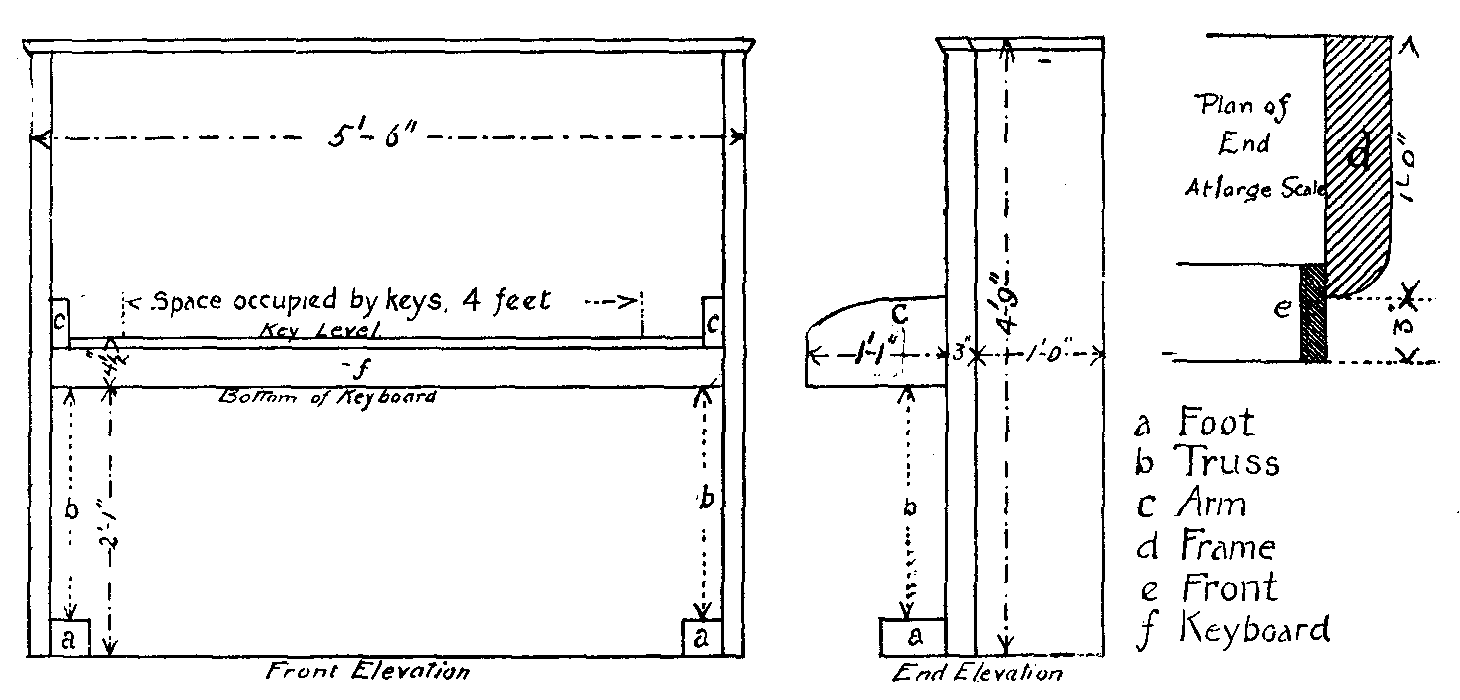 5'-6"
Space occupied by keys, 4 feet
Key Level
c
c
4½"
f
Bottom of Keyboard
b
2'-1"
b
a
a
Front Elevation
4'-9"
c
1'-1"
3"
1'-0"
b
a
End Elevation
Plan of
End
At large Scale
d
1'-0"
e
3"
a Foot
b Truss
c Arm
d Frame
e Front
f Keyboard